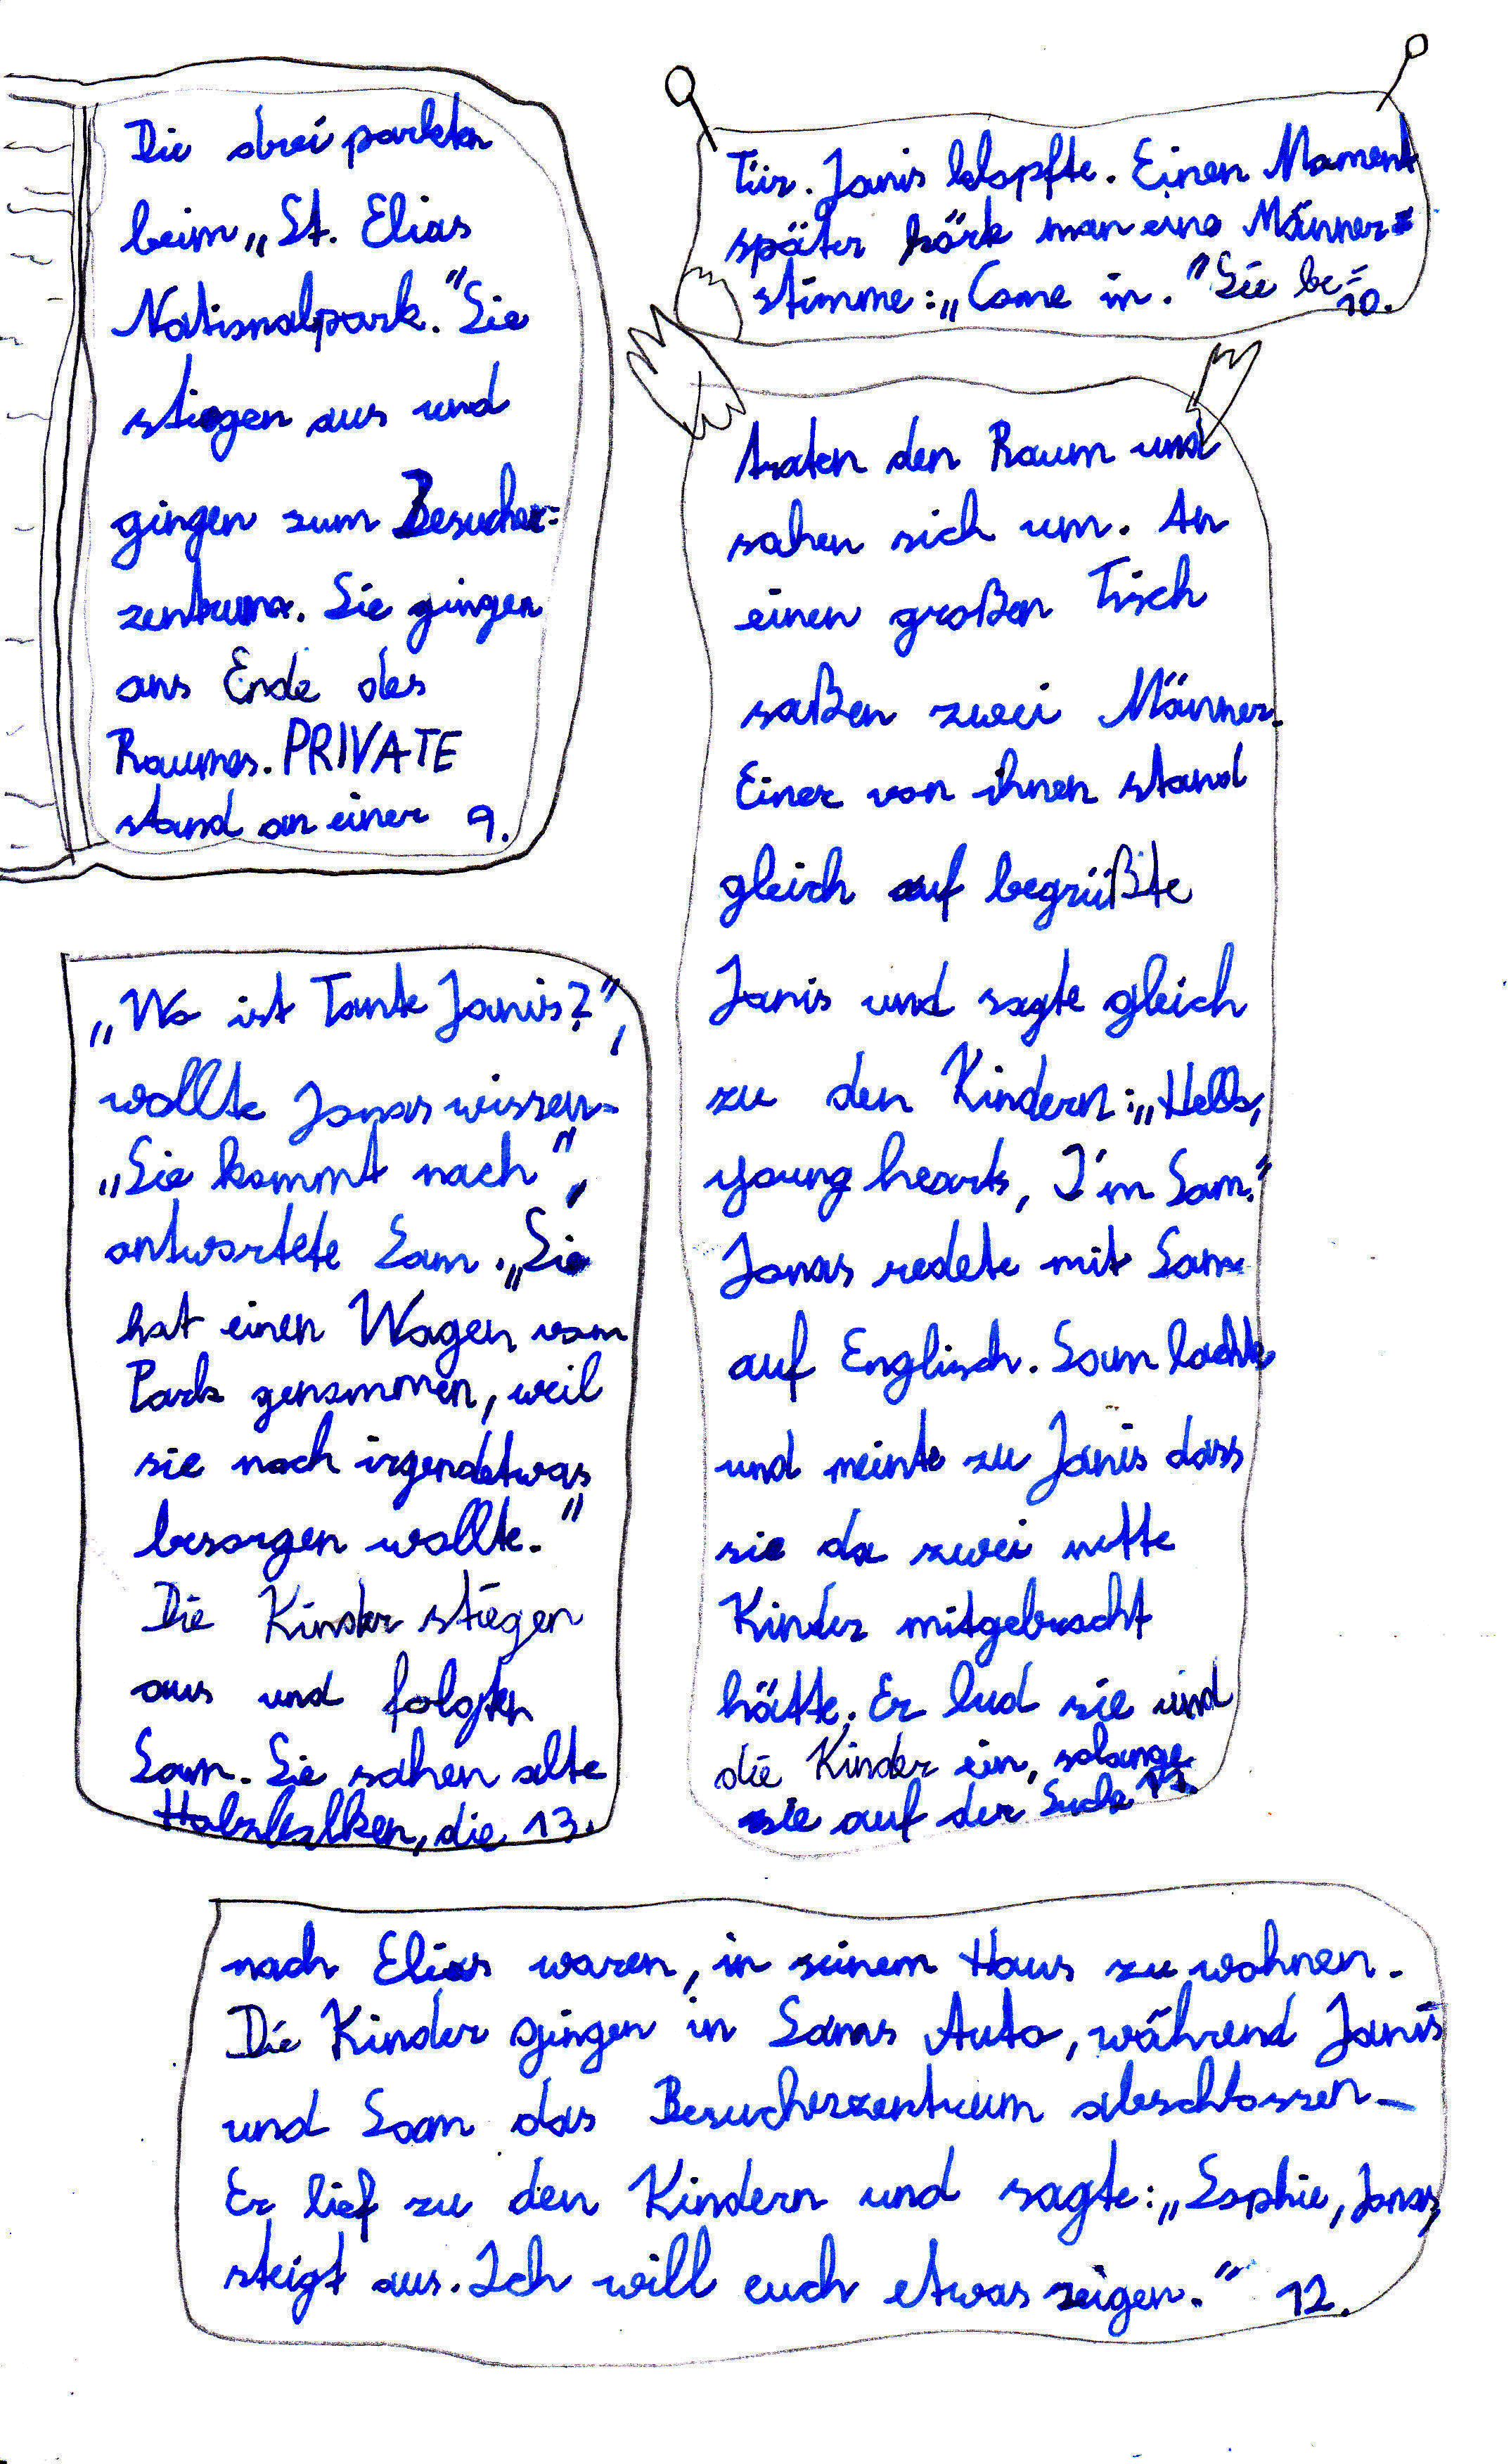 Die drei parkten
beim „St. Elias
Nationalpark." Sie
stiegen aus und
gingen zum Besucher=
zentrum. Sie gingen
ans Ende des
Raumes. PRIVATE
stand an einer 9.
Tür. Janis klopfte. Einen Moment
später hörte man eine Männer=
stimme: „Come in." Sie be= 10.
traten den Raum und
sahen sich um. An
einen großen Tisch
saßen zwei Männer.
Einer von ihnen stand
gleich auf begrüßte
Janis und sagte gleich
zu den Kindern: „Hello,
young hearts, I'm Sam."
Jonas redete mit Sam
auf Englisch. Sam lachte
und meinte zu Janis dass
sie da zwei nette
Kinder mitgebracht
hätte. Er lud sie und
die Kinder ein, solange
sie auf der Suche 11.
nach Elias waren, in seinem Haus zu wohnen.
Die Kinder gingen in Sams Auto, während Janis
und Sam das Besucherzentrum abschlossen.
Er lief zu den Kindern und sagte: „Sophie, Jonas,
steigt aus. Ich will euch etwas zeigen." 12.
„Wo ist Tante Janis?",
wollte Jonas wissen.
„Sie kommt nach",
antwortete Sam. „Sie
hat einen Wagen vom
Park genommen, weil
sie noch irgendetwas
besorgen wollte."
Die Kinder stiegen
aus und folgten
Sam. Sie sahen alte
Holzbalken, die 13.